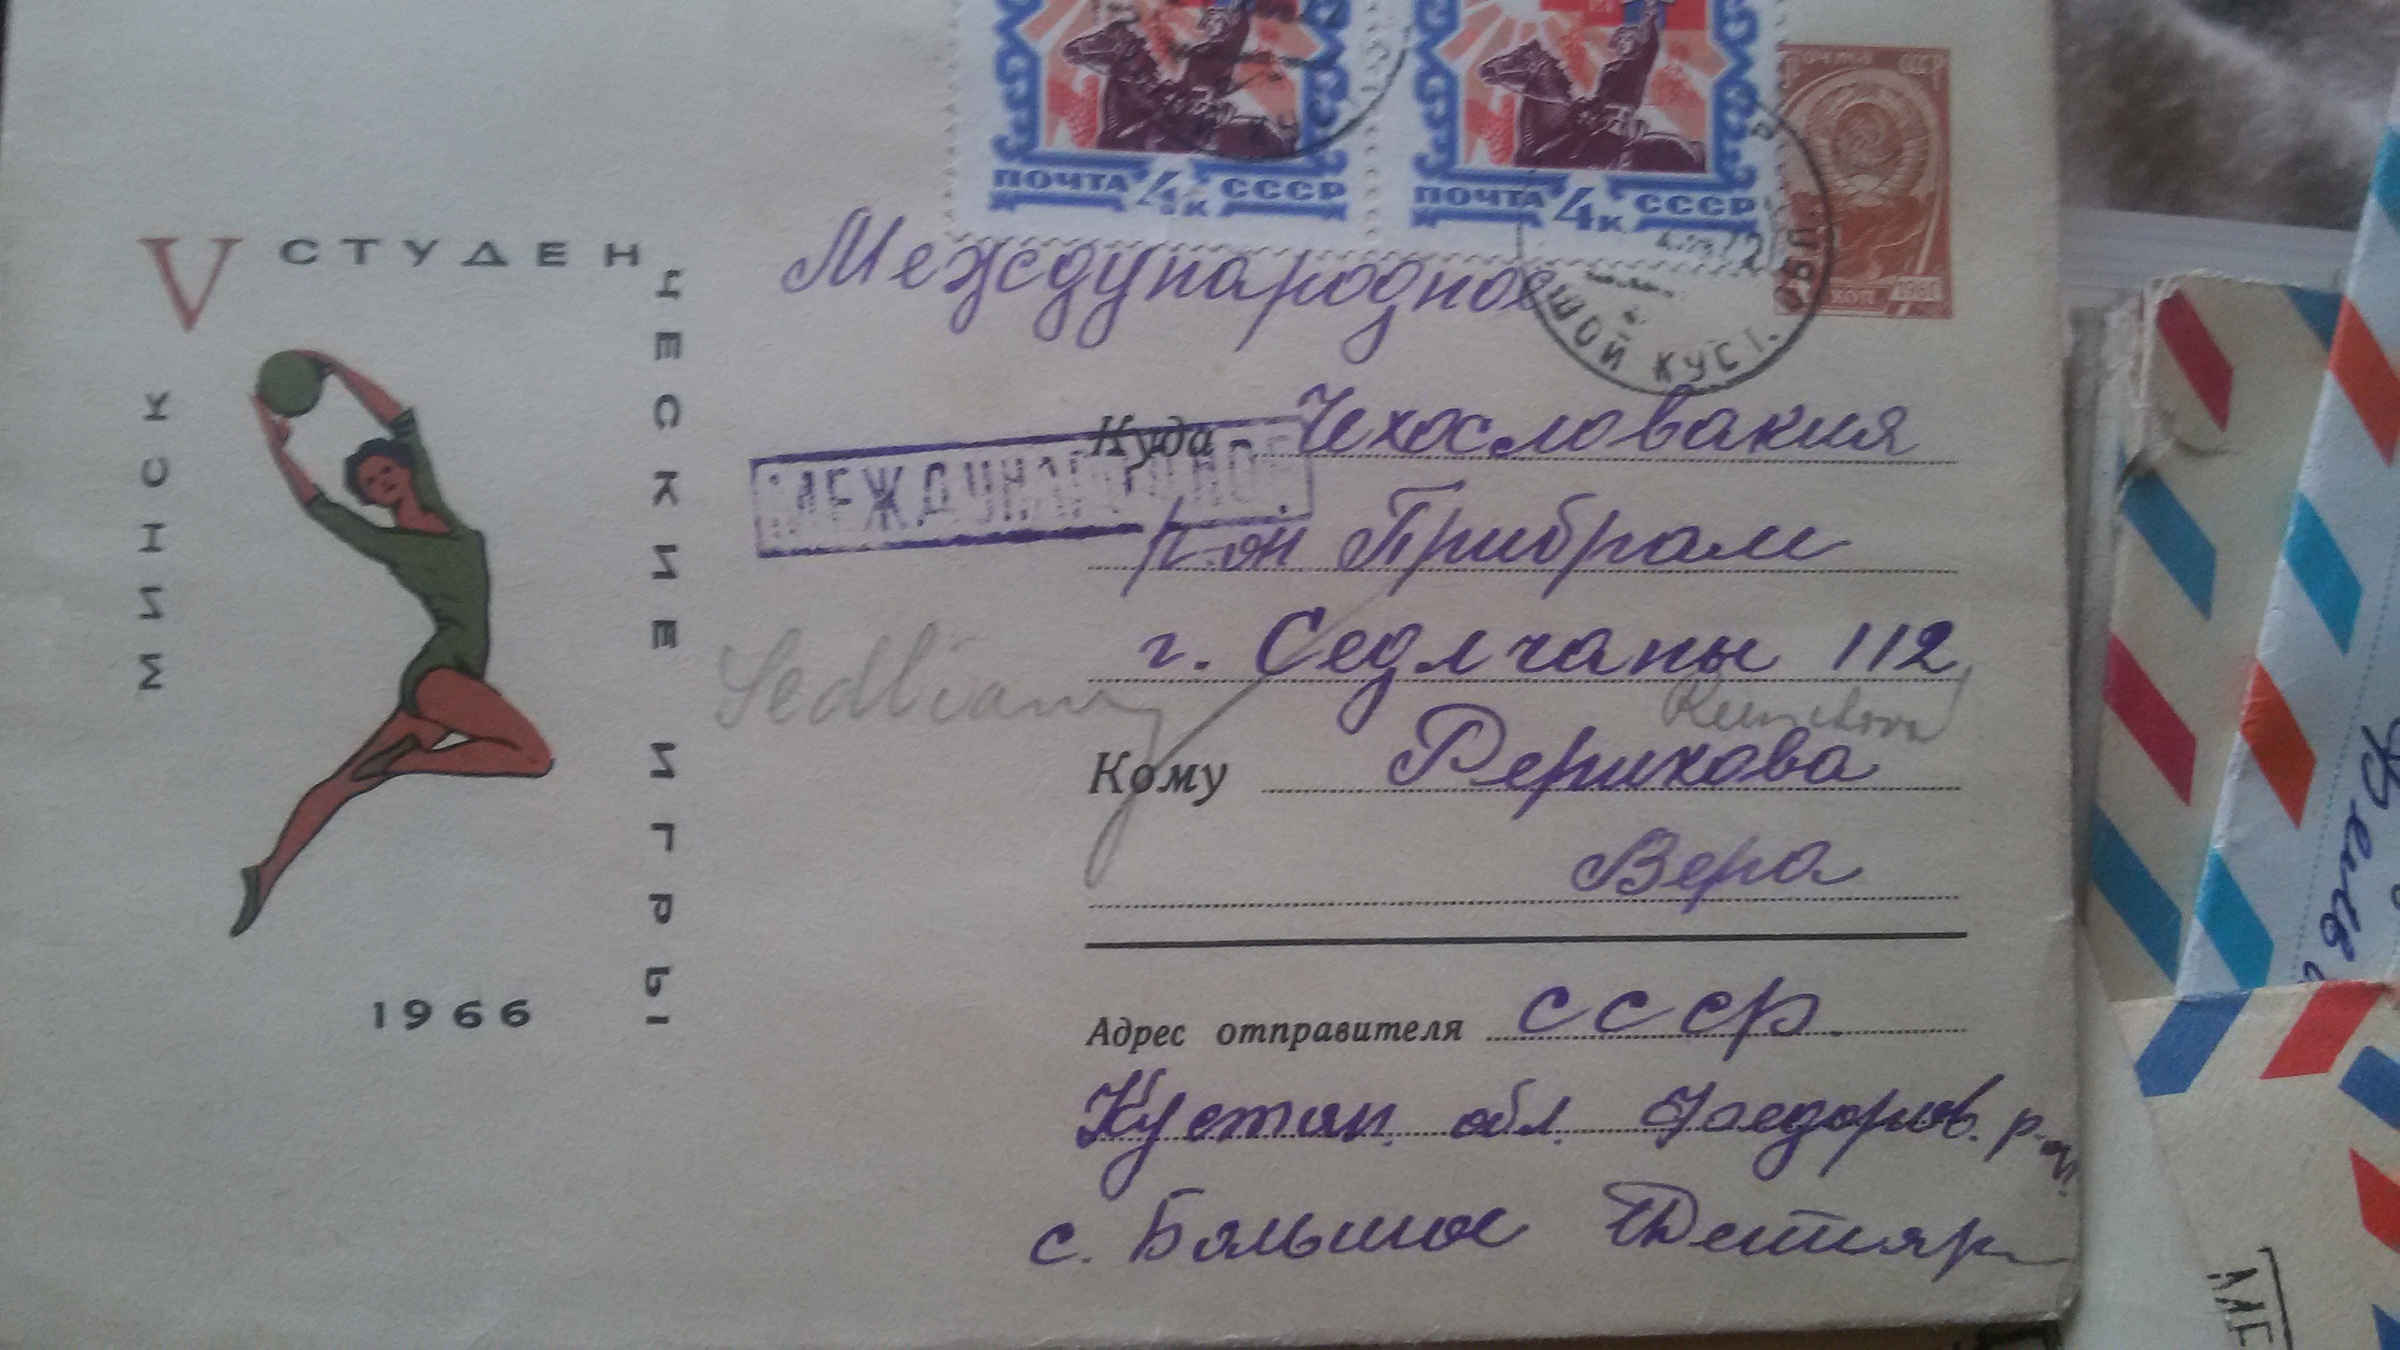 ПОЧТА 4к СССР
ПОЧТА 4к СССР
почта СССР
коп 1961
V СТУДЕНЧЕСКИЕ ИГРЫ
МИНСК
1966
Международное
ШОЙ КУСТ.
Куда Чехословакия
р-он Прибрам
г. Седлчаны 112
Sedlčany
Кому Рерихова
Вера
Адрес отправителя СССР.
Кустан. обл. Федоров. р-он.
с. Большое